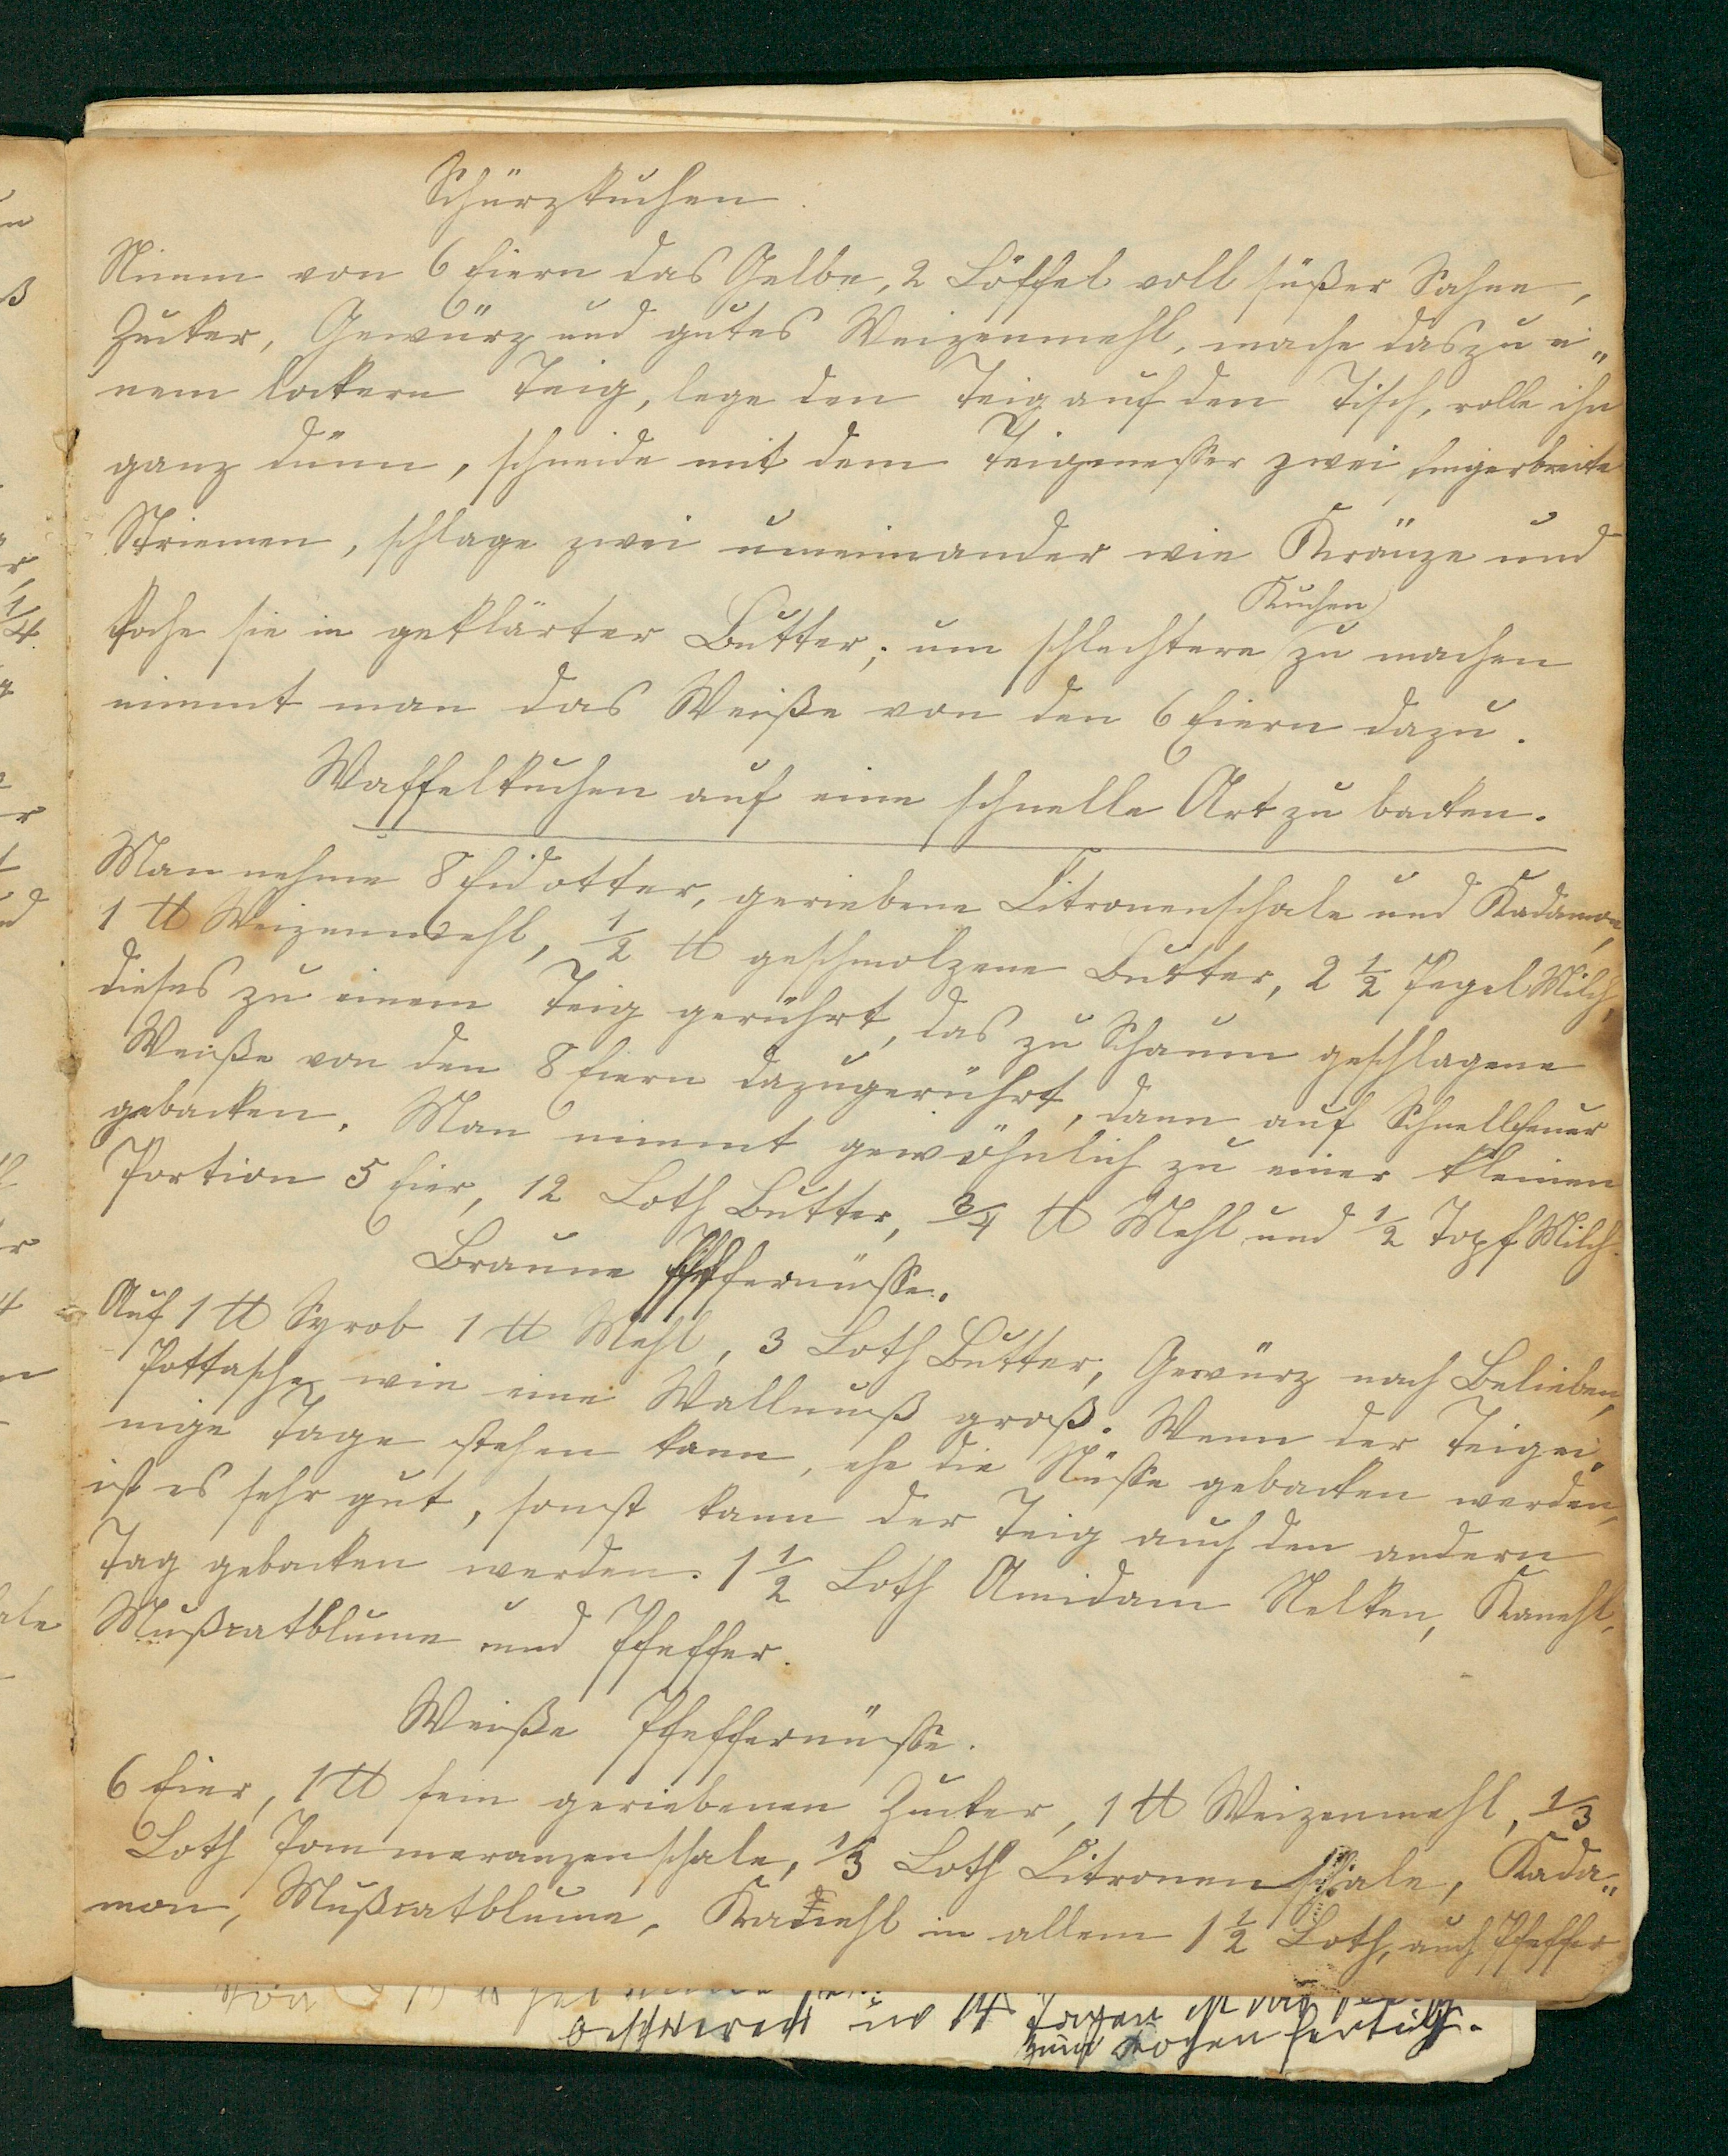 Schürzkuchen.
Nimm von 6 Eiern das Gelbe, 2 Löffel voll süßer Sahne,
Zucker, Gewürz und gutes Weizenmehl, mache das zu ei„
nem lockern Teig, lege den Teig auf den Tisch, rolle ihn
ganz dünn, schneide mit dem Teigmesser zwei fingerbreite
Striemen, schlage zwei umeinander wie Kränze und
Kuchen
koche sie in geklärter Butter; um schlechtere zu machen
nimmt man das Weiße von den 6 Eiern dazu.
Waffelkuchen auf eine schnelle Art zu backen.
Man nehme 8 Eidotter, geriebene Citronenschale und Kadamon,
1 ℔ Weizenmehl, 1/2 ℔ geschmolzene Butter, 2 1/2 Pegel Milch,
dieses zu einem Teig gerührt, das zu Schaum geschlagene
Weiße von den 8 Eiern dazugerührt, dann auf Schnellfeuer
gebacken. Man nimmt gewöhnlich zu einer kleinen
Portion 5 Eier, 12 Loth Butter, 3/4 ℔ Mehl und 1/2 Topf Milch.
Braune Pfeffernüsse.
Auf 1 ℔ Syrob 1 ℔ Mehl, 3 Loth Butter, Gewürz nach Belieben,
Pottasche wie eine Wallnuß groß. Wenn der Teig ei„
nige Tage stehen kann, ehe die Nüsse gebacken werden,
ist es sehr gut, sonst kann der Teig auch den andern
Tag gebacken werden. 1 1/2 Loth Amidam Nelken, Kanehl,
Mußcatblume und Pfeffer.
Weiße Pfeffernüsse.
6 Eier, 1 ℔ fein geriebenen Zucker, 1 ℔ Weizenmehl, 1/3
Loth Pommeranzenschale, 1/3 Loth Citronenschale, Kada„
mon, Mußcatblume, Kanehl in allem 1 1/2 Loth, auch Pfeffer
beschwerd in 14 Tagen ist das
zum kochen fertig.